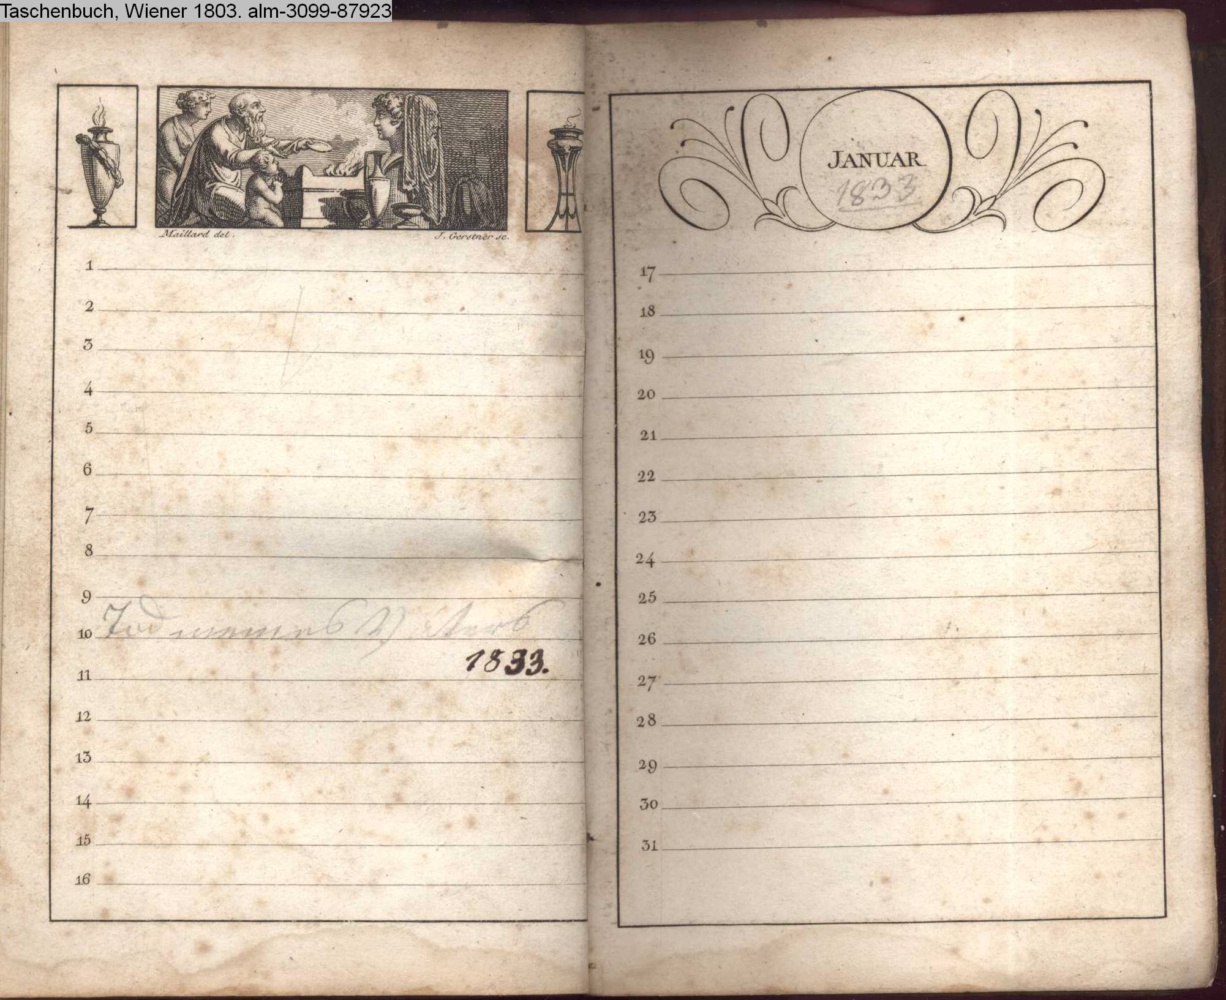 Taschenbuch, Wiener 1803. alm-3099-87923
Maillard del.
J. Gerstner sc.
1
2
3
4
5
6
7
8
9
10 Tod meines Vaters
1833.
11
12
13
14
15
16
JANUAR
1833
17
18
19
20
21
22
23
24
25
26
27
28
29
30
31